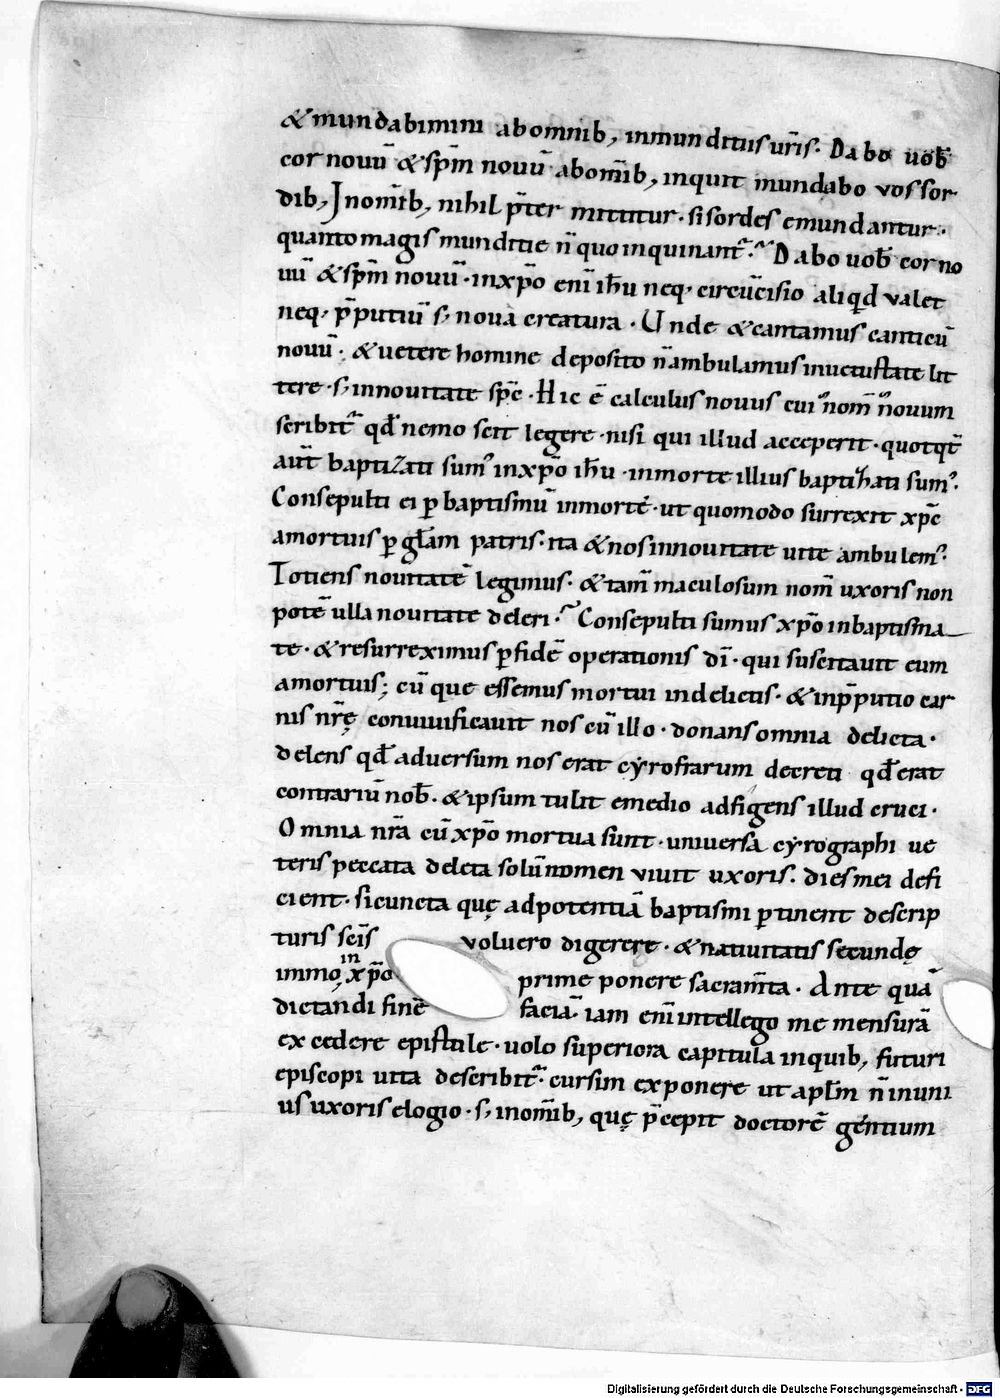 &mundabimini abomnib; inmunditiis ur̄is. Dabo uob̄
cor nouū &sp̄m nouū abom̄ib; inquit mundabo vos sor
dib; Inom̄ib; nihil p̄ter mittitur. si sordes emundantur.
quanto magis munditie n̄ quoinquinant̄. Dabo uob̄ cor no
uū &sp̄m nouū. inxp̄o enī ih̄u neq; circūcisio aliqd̄ valet
neq; p̄putiū s; noua creatura. Unde &cantamus canticū
nouū. &uetere homine deposito n̄ambulamus inuetustate lit
tere. s; innouitate sp̄c. Hic ē calculus nouus cui nom̄ nouum
scribit̄ qd̄ nemo scit legere nisi qui illud acceperit. quotqt̄
aut̄ baptizati sum᾿ inxp̄o ih̄u. inmorte illius baptizati sum᾿.
Consepulti ei p̱ baptismū inmortē. ut quomodo surrexit xp̄c
amortuis p̱ gl̄am patris. ita &nos innouitate uite ambulem᾿.
Totiens nouitatē legimus. &tam̄ maculosum nom̄ uxoris non
potē ulla nouitate deleri. Consepulti sumus xp̄o inbaptisma
te. &resurreximus p̱ fidē operationis dī. qui suscitauit eum
amortuis; cū que essemus mortui indelictis. &inp̄putio car
nis nr̄ę conuiuificauit nos cū illo. donans omnia delicta.
delens qd̄ aduersum nos erat cẏrofrarum decreti qd̄ erat
contrariū nob̄. &ipsum tulit emedio adfigens illud cruci.
Omnia nr̄a cū xp̄o mortua sunt. uniuersa cẏrographi ue
teris peccata deleta solūnomen viuit uxoris. dies mei defi
cient. si cuncta quę adpotentiā baptismi p̱tinent descrip
turis sc̄is voluero digerere. &natiuitatis secundę
immo in xp̄o prime ponere sacram̄ta. Ante quā
dictandi finē faciā. iam enī intellego me mensurā
excedere epistule. uolo superiora capitula inquib; futuri
episcopi uita describit̄. cursim exponere ut apl̄m n̄ inuni
us uxoris elogio. s; inom̄ib; quę p̄cepit doctorē gentium
Digitalisierung gefördert durch die Deutsche Forschungsgemeinschaft - DFG